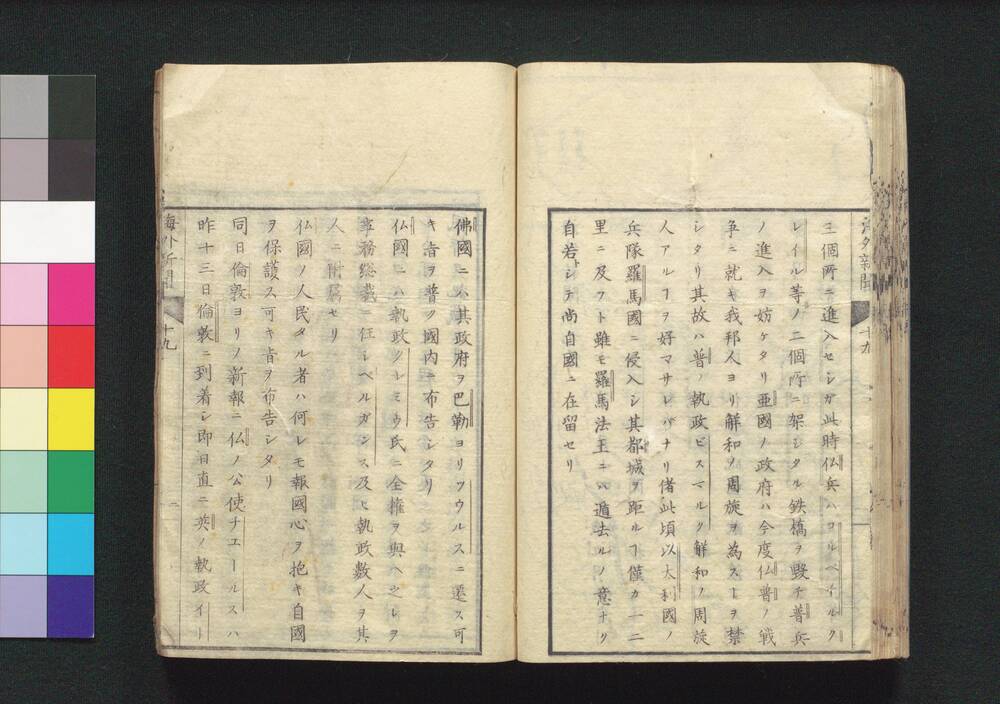 海外新聞 十九
三個所ニ進入セシガ此時仏兵ハコルベイルク
レイル等ノ二個所ニ架シタル鉄橋ヲ毀チ普兵
ノ進入ヲ妨ケタリ亜國ノ政府ハ今度仏普ノ戦
争ニ就キ我邦人ヨリ解和ノ周旋ヲ為スヿヲ禁
シタリ其故ハ普ノ執政ビスマルク解和ノ周旋
人アルヿヲ好マサレバナリ偖此頃以太利國ノ
兵隊羅馬國ニ侵入シ其都城ヲ距ルヿ僅カ一二
里ニ及フト雖モ羅馬法王ニハ遁去ルノ意ナク
自若トシテ尚自國ニ在留セリ
佛國ニハ其政府ヲ巴勒ヨリツウルスニ遷ス可
キ旨ヲ普ク國内ニ布告シタリ
仏國ニハ執政クレミウ氏ニ全権ヲ與ヘ之レヲ
事務総裁ニ任シベルガンス及ヒ執政數人ヲ其
人ニ附属セリ
仏國ノ人民タル者ハ何レモ報國心ヲ抱キ自國
ヲ保護ス可キ旨ヲ布告シタリ
同日倫敦ヨリノ新報ニ仏ノ公使チエールスハ
昨十三日倫敦ニ到着シ即日直ニ英ノ執政イー
海外新聞 十九 二